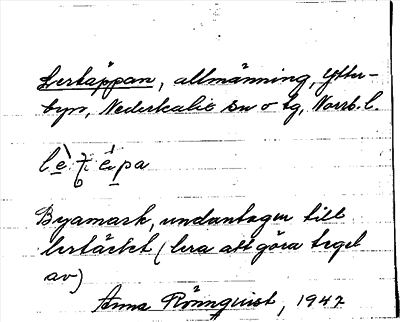 Lertäppan, allmänning, Ytter-
byn, Nederkalix sn o tg, Norrb. l.
Byamark, undantagen till
lertäckt (lera att göra tegel
av)
Anna Rönnquist, 1947